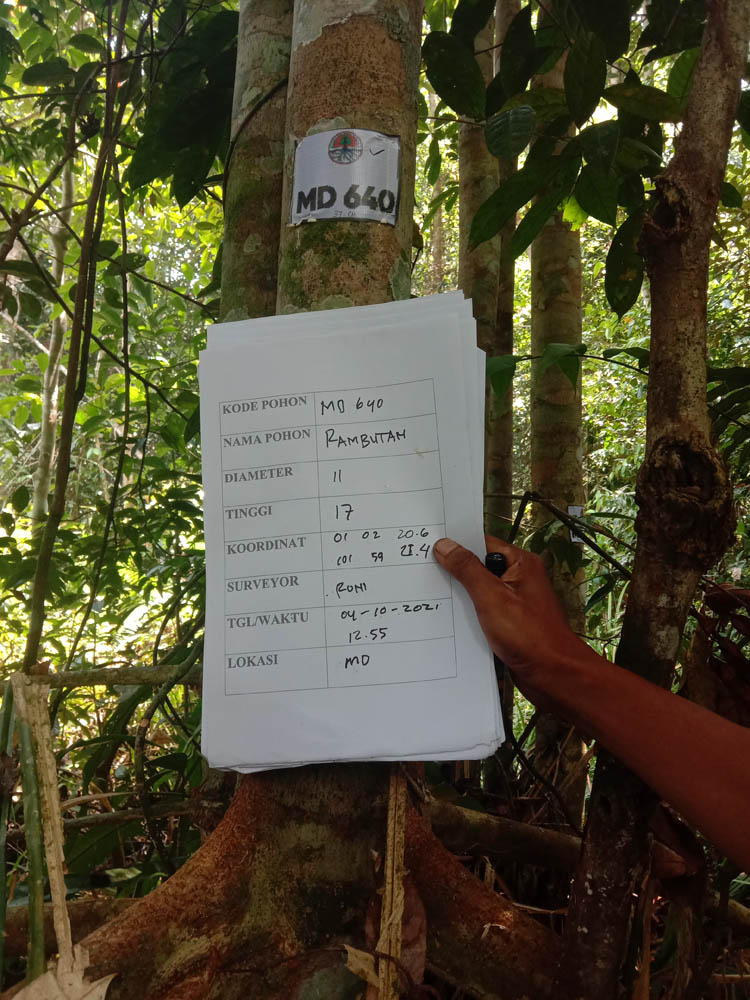 MD 640
KODE POHON MD 640
NAMA POHON RAMBUTAN
DIAMETER 11
TINGGI 17
KOORDINAT 01 02 20.6
101 59 21.4
SURVEYOR RONI
TGL/WAKTU 04-10-2021
12.55
LOKASI MD